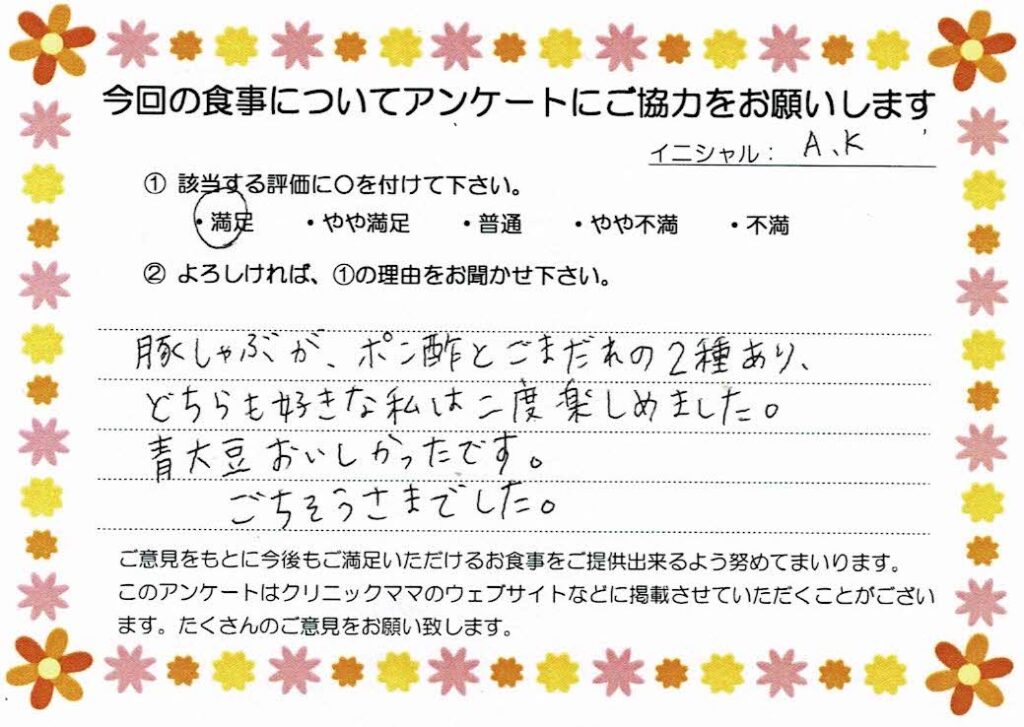 今回の食事についてアンケートにご協力をお願いします
イニシャル： A、K
① 該当する評価に〇を付けて下さい。
・満足 ・やや満足 ・普通 ・やや不満 ・不満
② よろしければ、①の理由をお聞かせ下さい。
豚しゃぶが、ポン酢とごまだれの2種あり、
どちらも好きな私は二度楽しめました。
青大豆おいしかったです。
ごちそうさまでした。
ご意見をもとに今後もご満足いただけるお食事をご提供出来るよう努めてまいります。
このアンケートはクリニックママのウェブサイトなどに掲載させていただくことがござい
ます。たくさんのご意見をお願い致します。